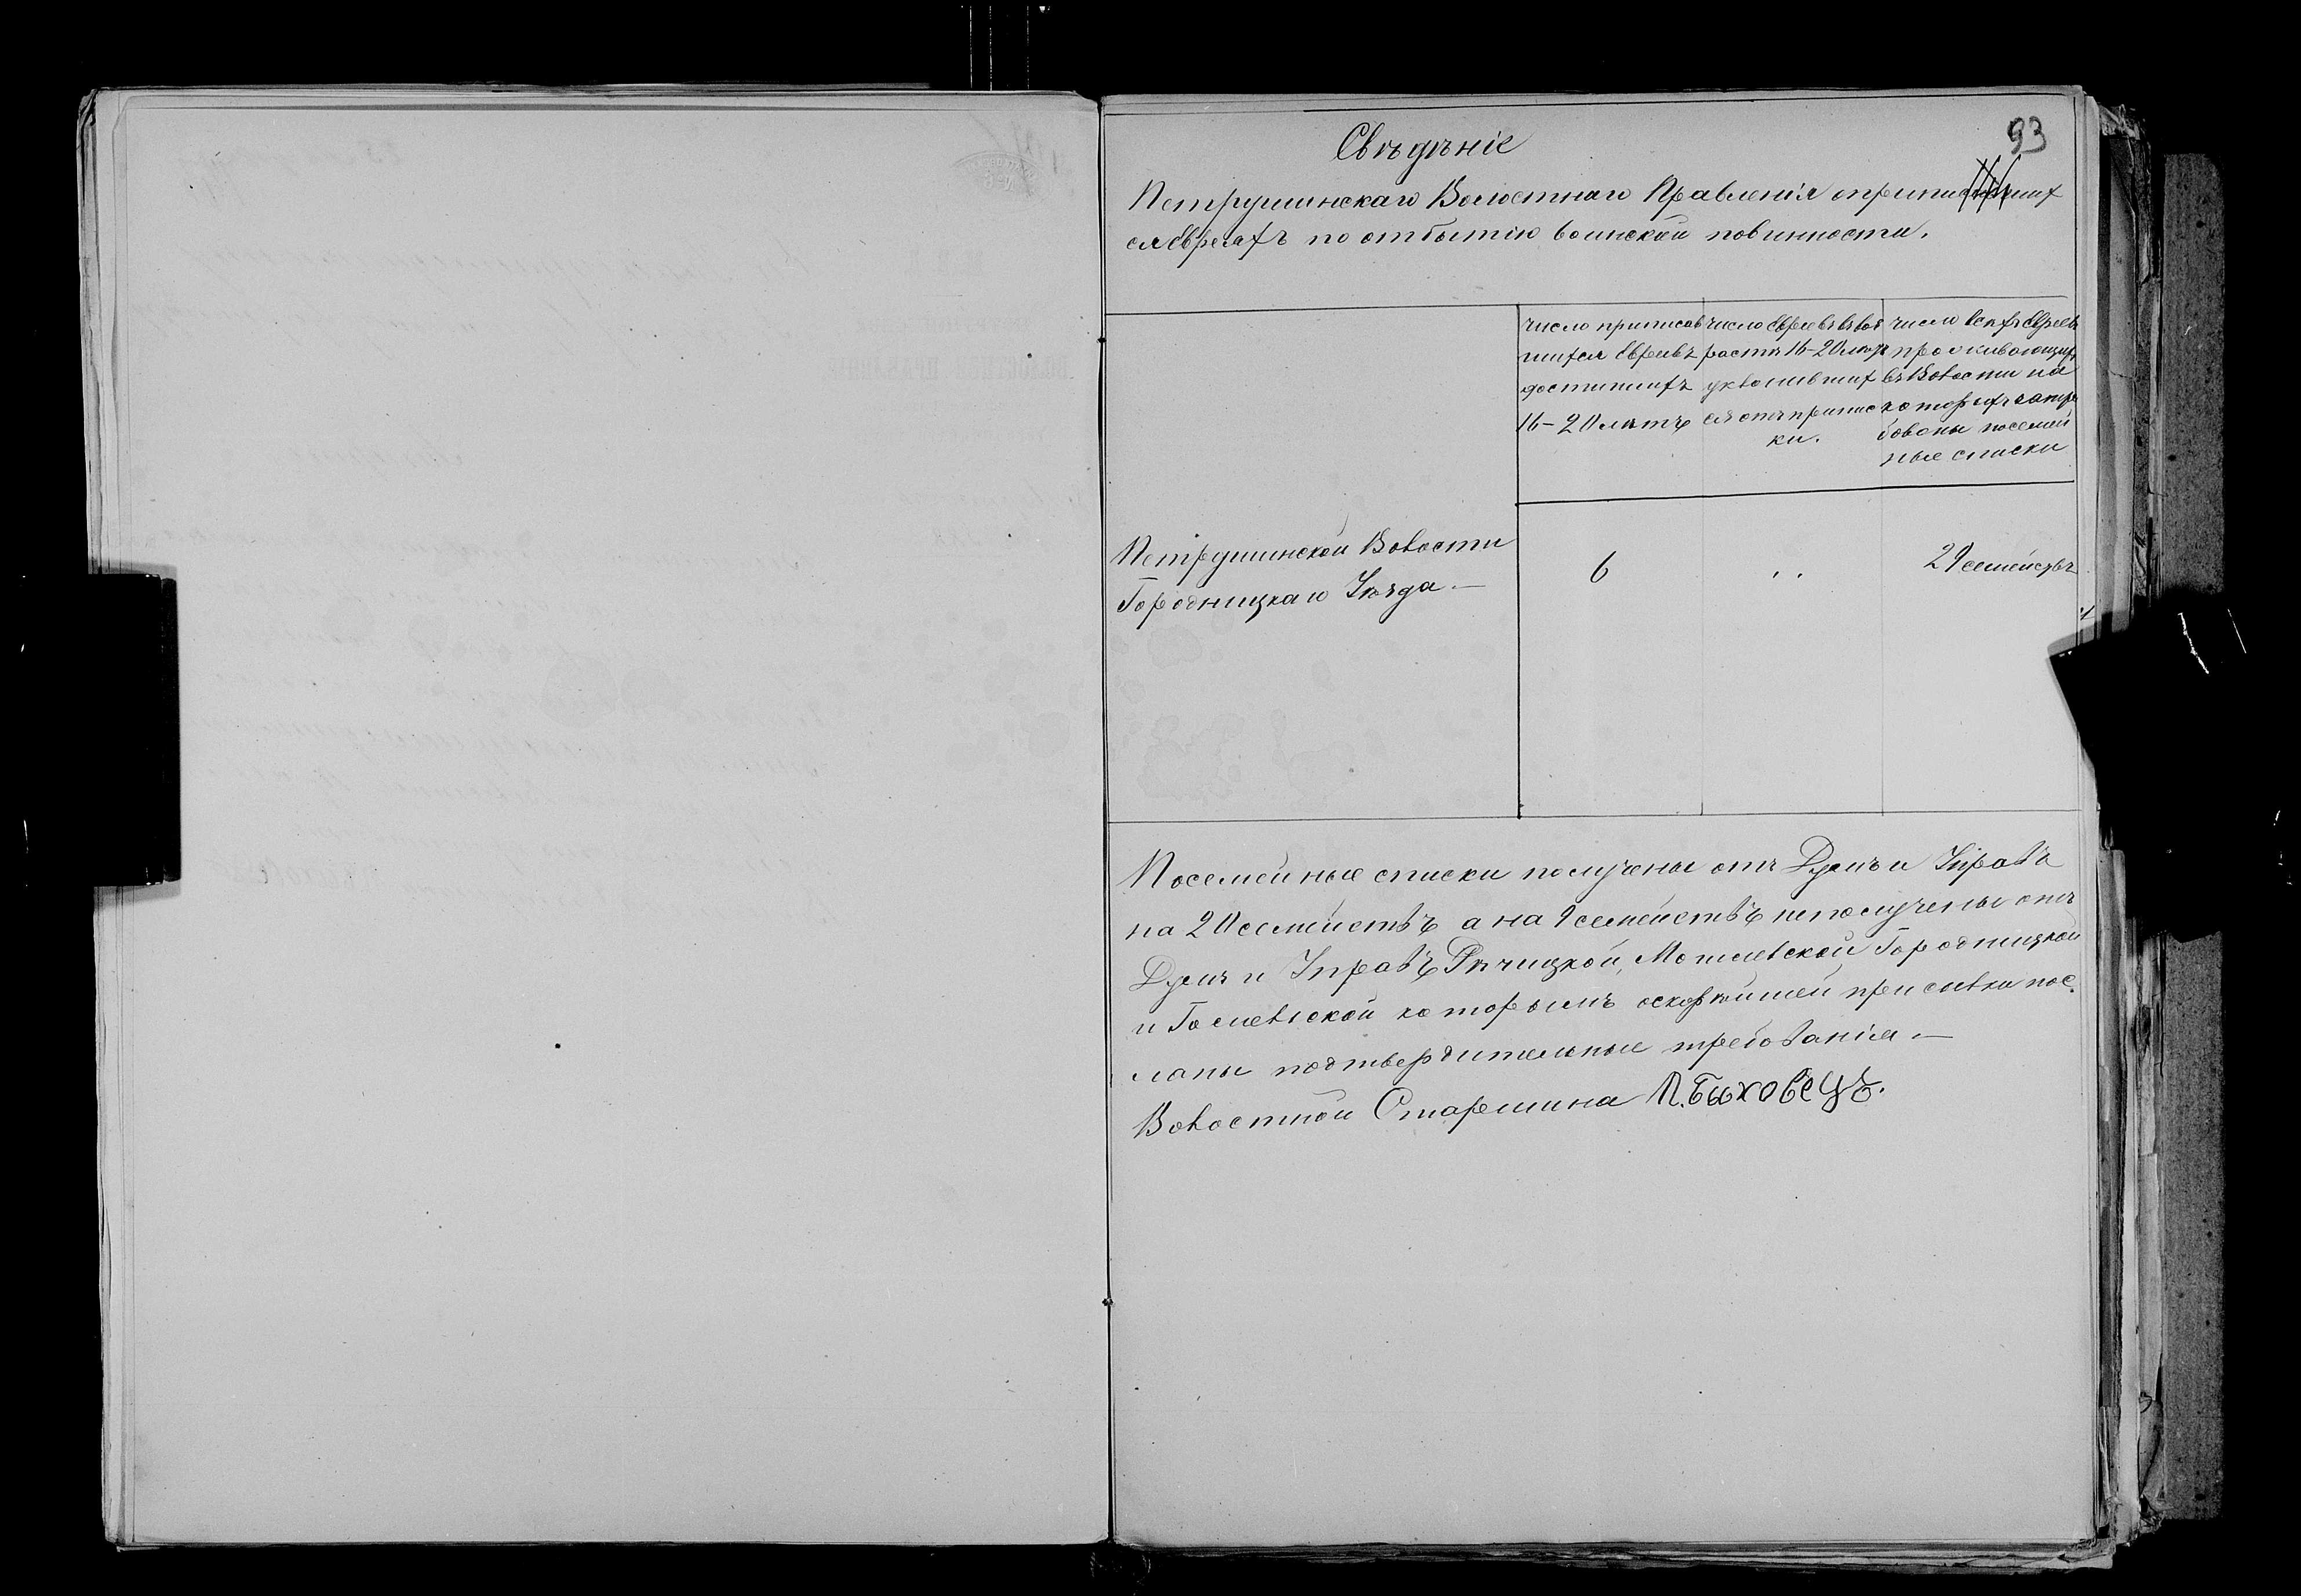 93
Свѣдѣніе
Петрушинскаго Волостнаго Правленія оприписавших
ся Евреяхъ по отбытію воинской повинности.
число приписав
шихся Евреевъ
достигшихъ
16-20 лѣтъ
число Евреевъ въ воз
растѣ 16-20 лѣтъ
уклонивших
ся отъ припис
ки.
число всѣхъ Евреевъ
проживающихъ
въ Волости на
которыхъ затре
бованы посемей
ные списки
Петрушинской Волости
Городницкаго Уѣзда —
6
"
29 семействъ
Посемейные списки получены отъ Думъ и Управъ
на 20 семействъ а на 9 семействъ неполучены отъ
Думъ и Управъ Рѣчицкой, Могилевской Городницкой
и Гомельской которымъ оскорѣйшей присылки пос
ланы подтвердительные требованія —
Волостной Старшина П. Быховецъ.